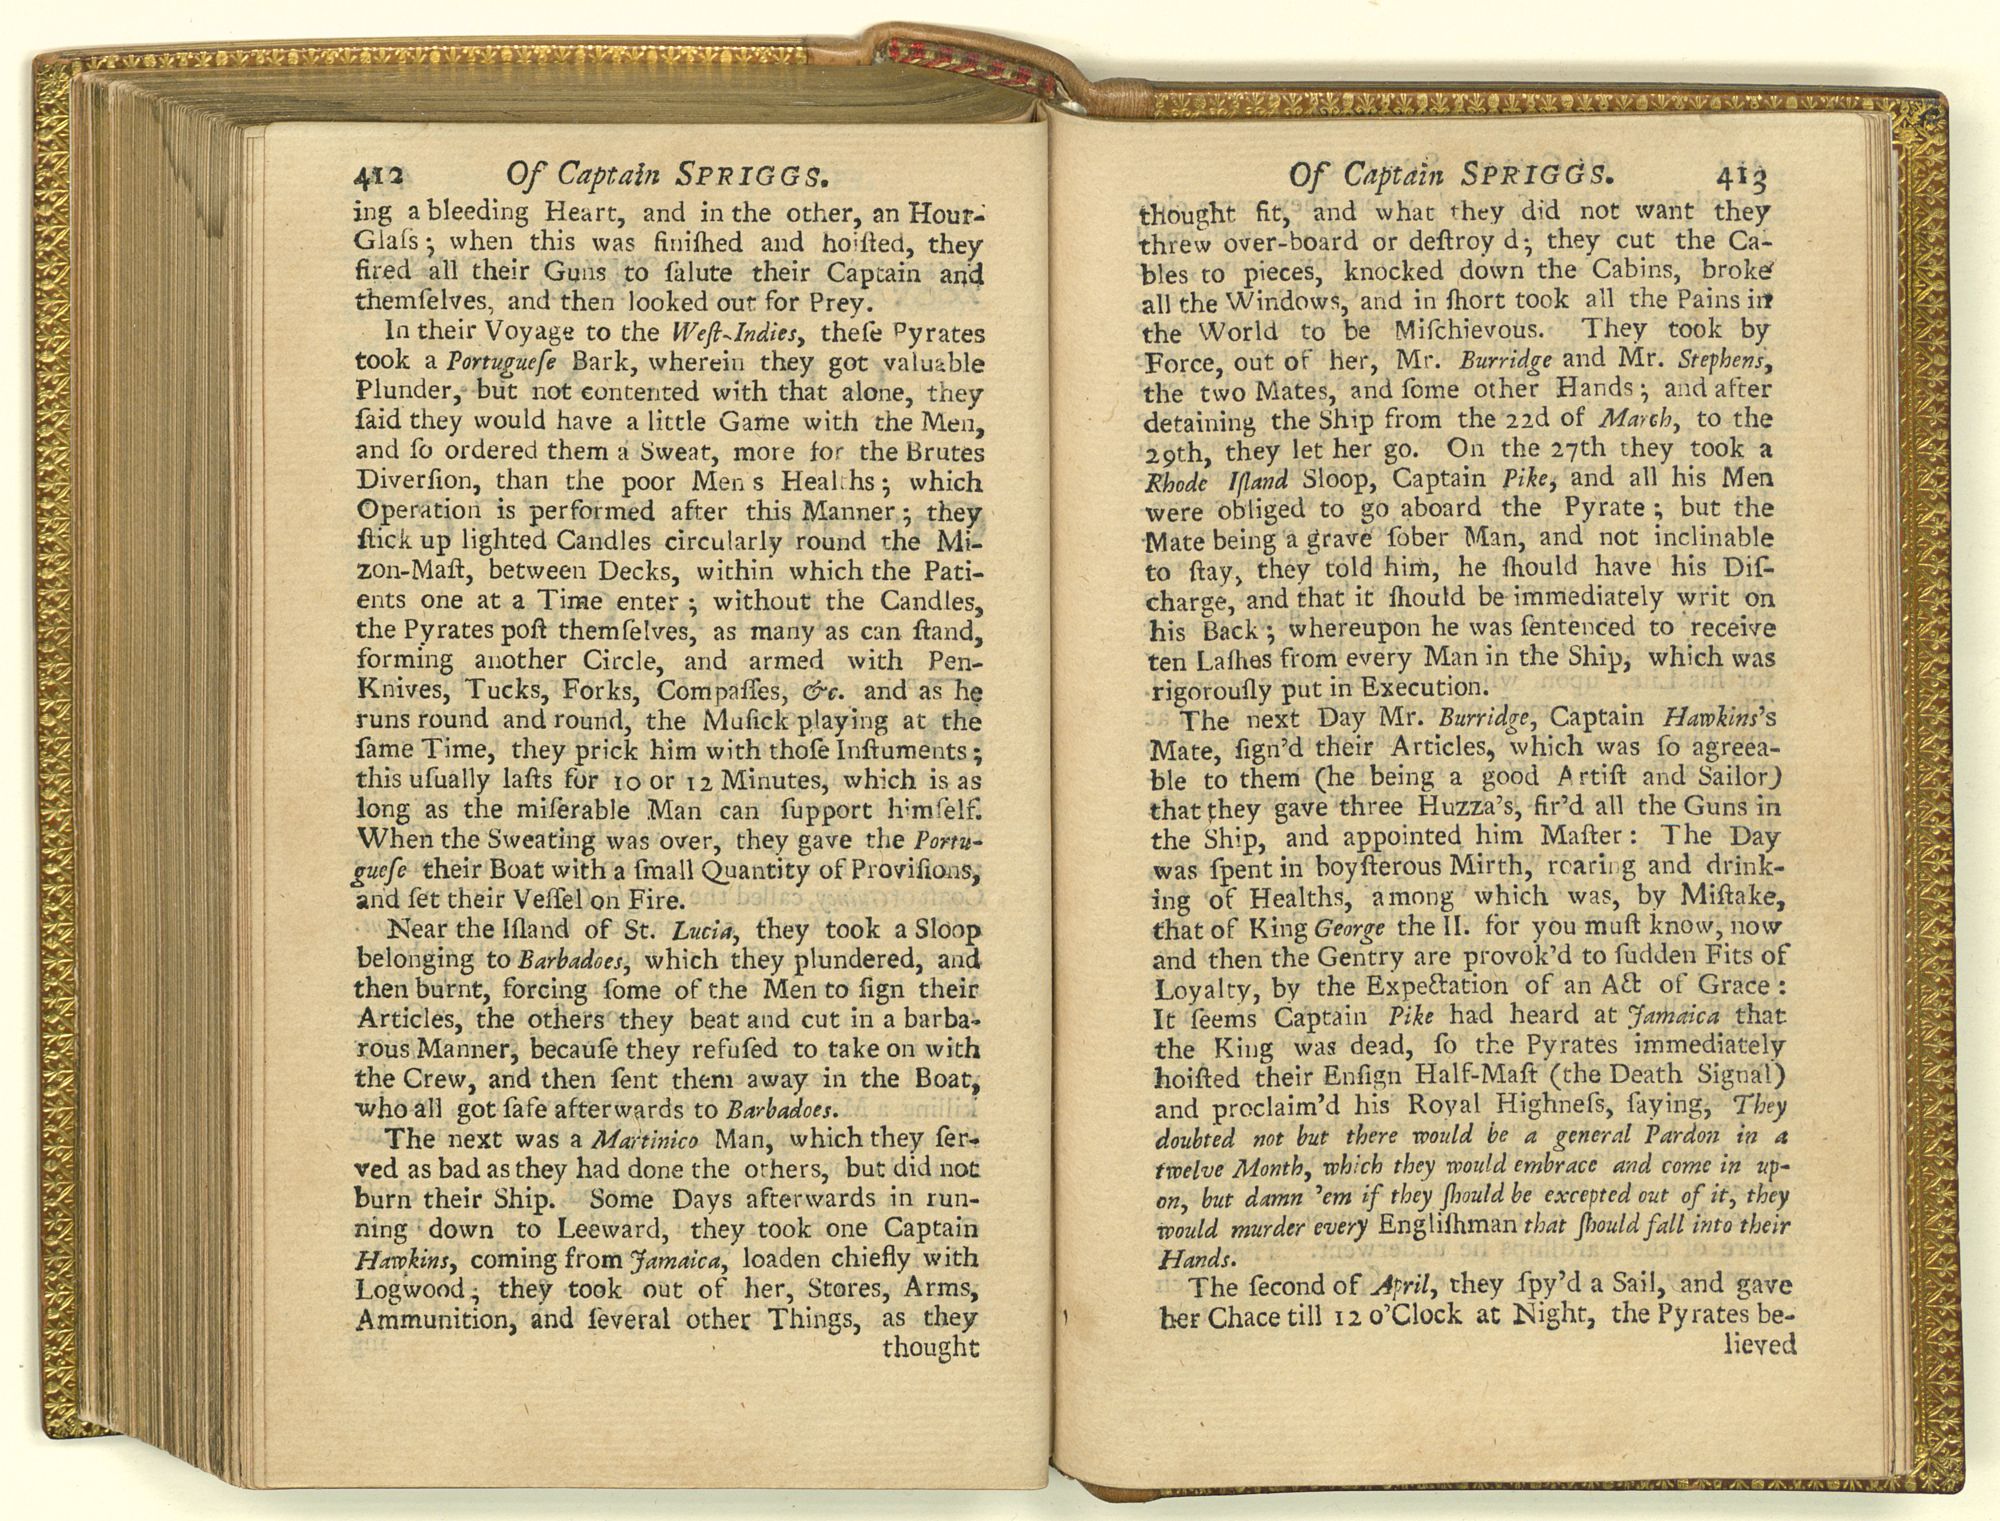 412 Of Captain SPRIGGS.
ing a bleeding Heart, and in the other, an Hour-
Glaſs; when this was finiſhed and hoiſted, they
fired all their Guns to ſalute their Captain and
themſelves, and then looked out for Prey.
In their Voyage to the Weſt-Indies, theſe Pyrates
took a Portugueſe Bark, wherein they got valuable
Plunder, but not contented with that alone, they
ſaid they would have a little Game with the Men,
and ſo ordered them a Sweat, more for the Brutes
Diverſion, than the poor Men s Healths; which
Operation is performed after this Manner; they
ſtick up lighted Candles circularly round the Mi-
zon-Maſt, between Decks, within which the Pati-
ents one at a Time enter; without the Candles,
the Pyrates poſt themſelves, as many as can ſtand,
forming another Circle, and armed with Pen-
Knives, Tucks, Forks, Compaſſes, &c. and as he
runs round and round, the Muſick playing at the
ſame Time, they prick him with thoſe Inſtuments;
this uſually laſts for 10 or 12 Minutes, which is as
long as the miſerable Man can ſupport himſelf.
When the Sweating was over, they gave the Portu-
gueſe their Boat with a ſmall Quantity of Proviſions,
and ſet their Veſſel on Fire.
Near the Iſland of St. Lucia, they took a Sloop
belonging to Barbadoes, which they plundered, and
then burnt, forcing ſome of the Men to ſign their
Articles, the others they beat and cut in a barba-
rous Manner, becauſe they refuſed to take on with
the Crew, and then ſent them away in the Boat,
who all got ſafe afterwards to Barbadoes.
The next was a Martinico Man, which they ſer-
ved as bad as they had done the others, but did not
burn their Ship. Some Days afterwards in run-
ning down to Leeward, they took one Captain
Hawkins, coming from Jamaica, loaden chiefly with
Logwood; they took out of her, Stores, Arms,
Ammunition, and ſeveral other Things, as they
thought
Of Captain SPRIGGS. 413
thought fit, and what they did not want they
threw over-board or deſtroy d; they cut the Ca-
bles to pieces, knocked down the Cabins, broke
all the Windows, and in ſhort took all the Pains in
the World to be Miſchievous. They took by
Force, out of her, Mr. Burridge and Mr. Stephens,
the two Mates, and ſome other Hands; and after
detaining the Ship from the 22d of March, to the
29th, they let her go. On the 27th they took a
Rhode Iſland Sloop, Captain Pike, and all his Men
were obliged to go aboard the Pyrate; but the
Mate being a grave ſober Man, and not inclinable
to ſtay, they told him, he ſhould have his Diſ-
charge, and that it ſhould be immediately writ on
his Back; whereupon he was ſentenced to receive
ten Laſhes from every Man in the Ship, which was
rigorouſly put in Execution.
The next Day Mr. Burridge, Captain Hawkins's
Mate, ſign'd their Articles, which was ſo agreea-
ble to them (he being a good Artiſt and Sailor)
that they gave three Huzza's, fir'd all the Guns in
the Ship, and appointed him Maſter: The Day
was ſpent in boyſterous Mirth, roaring and drink-
ing of Healths, among which was, by Miſtake,
that of King George the II. for you muſt know, now
and then the Gentry are provok'd to ſudden Fits of
Loyalty, by the Expectation of an Act of Grace:
It ſeems Captain Pike had heard at Jamaica that
the King was dead, ſo the Pyrates immediately
hoiſted their Enſign Half-Maſt (the Death Signal)
and proclaim'd his Royal Highneſs, ſaying, They
doubted not but there would be a general Pardon in a
twelve Month, which they would embrace and come in up-
on, but damn 'em if they ſhould be excepted out of it, they
would murder every Engliſhman that ſhould fall into their
Hands.
The ſecond of April, they ſpy'd a Sail, and gave
her Chace till 12 o'Clock at Night, the Pyrates be-
lieved